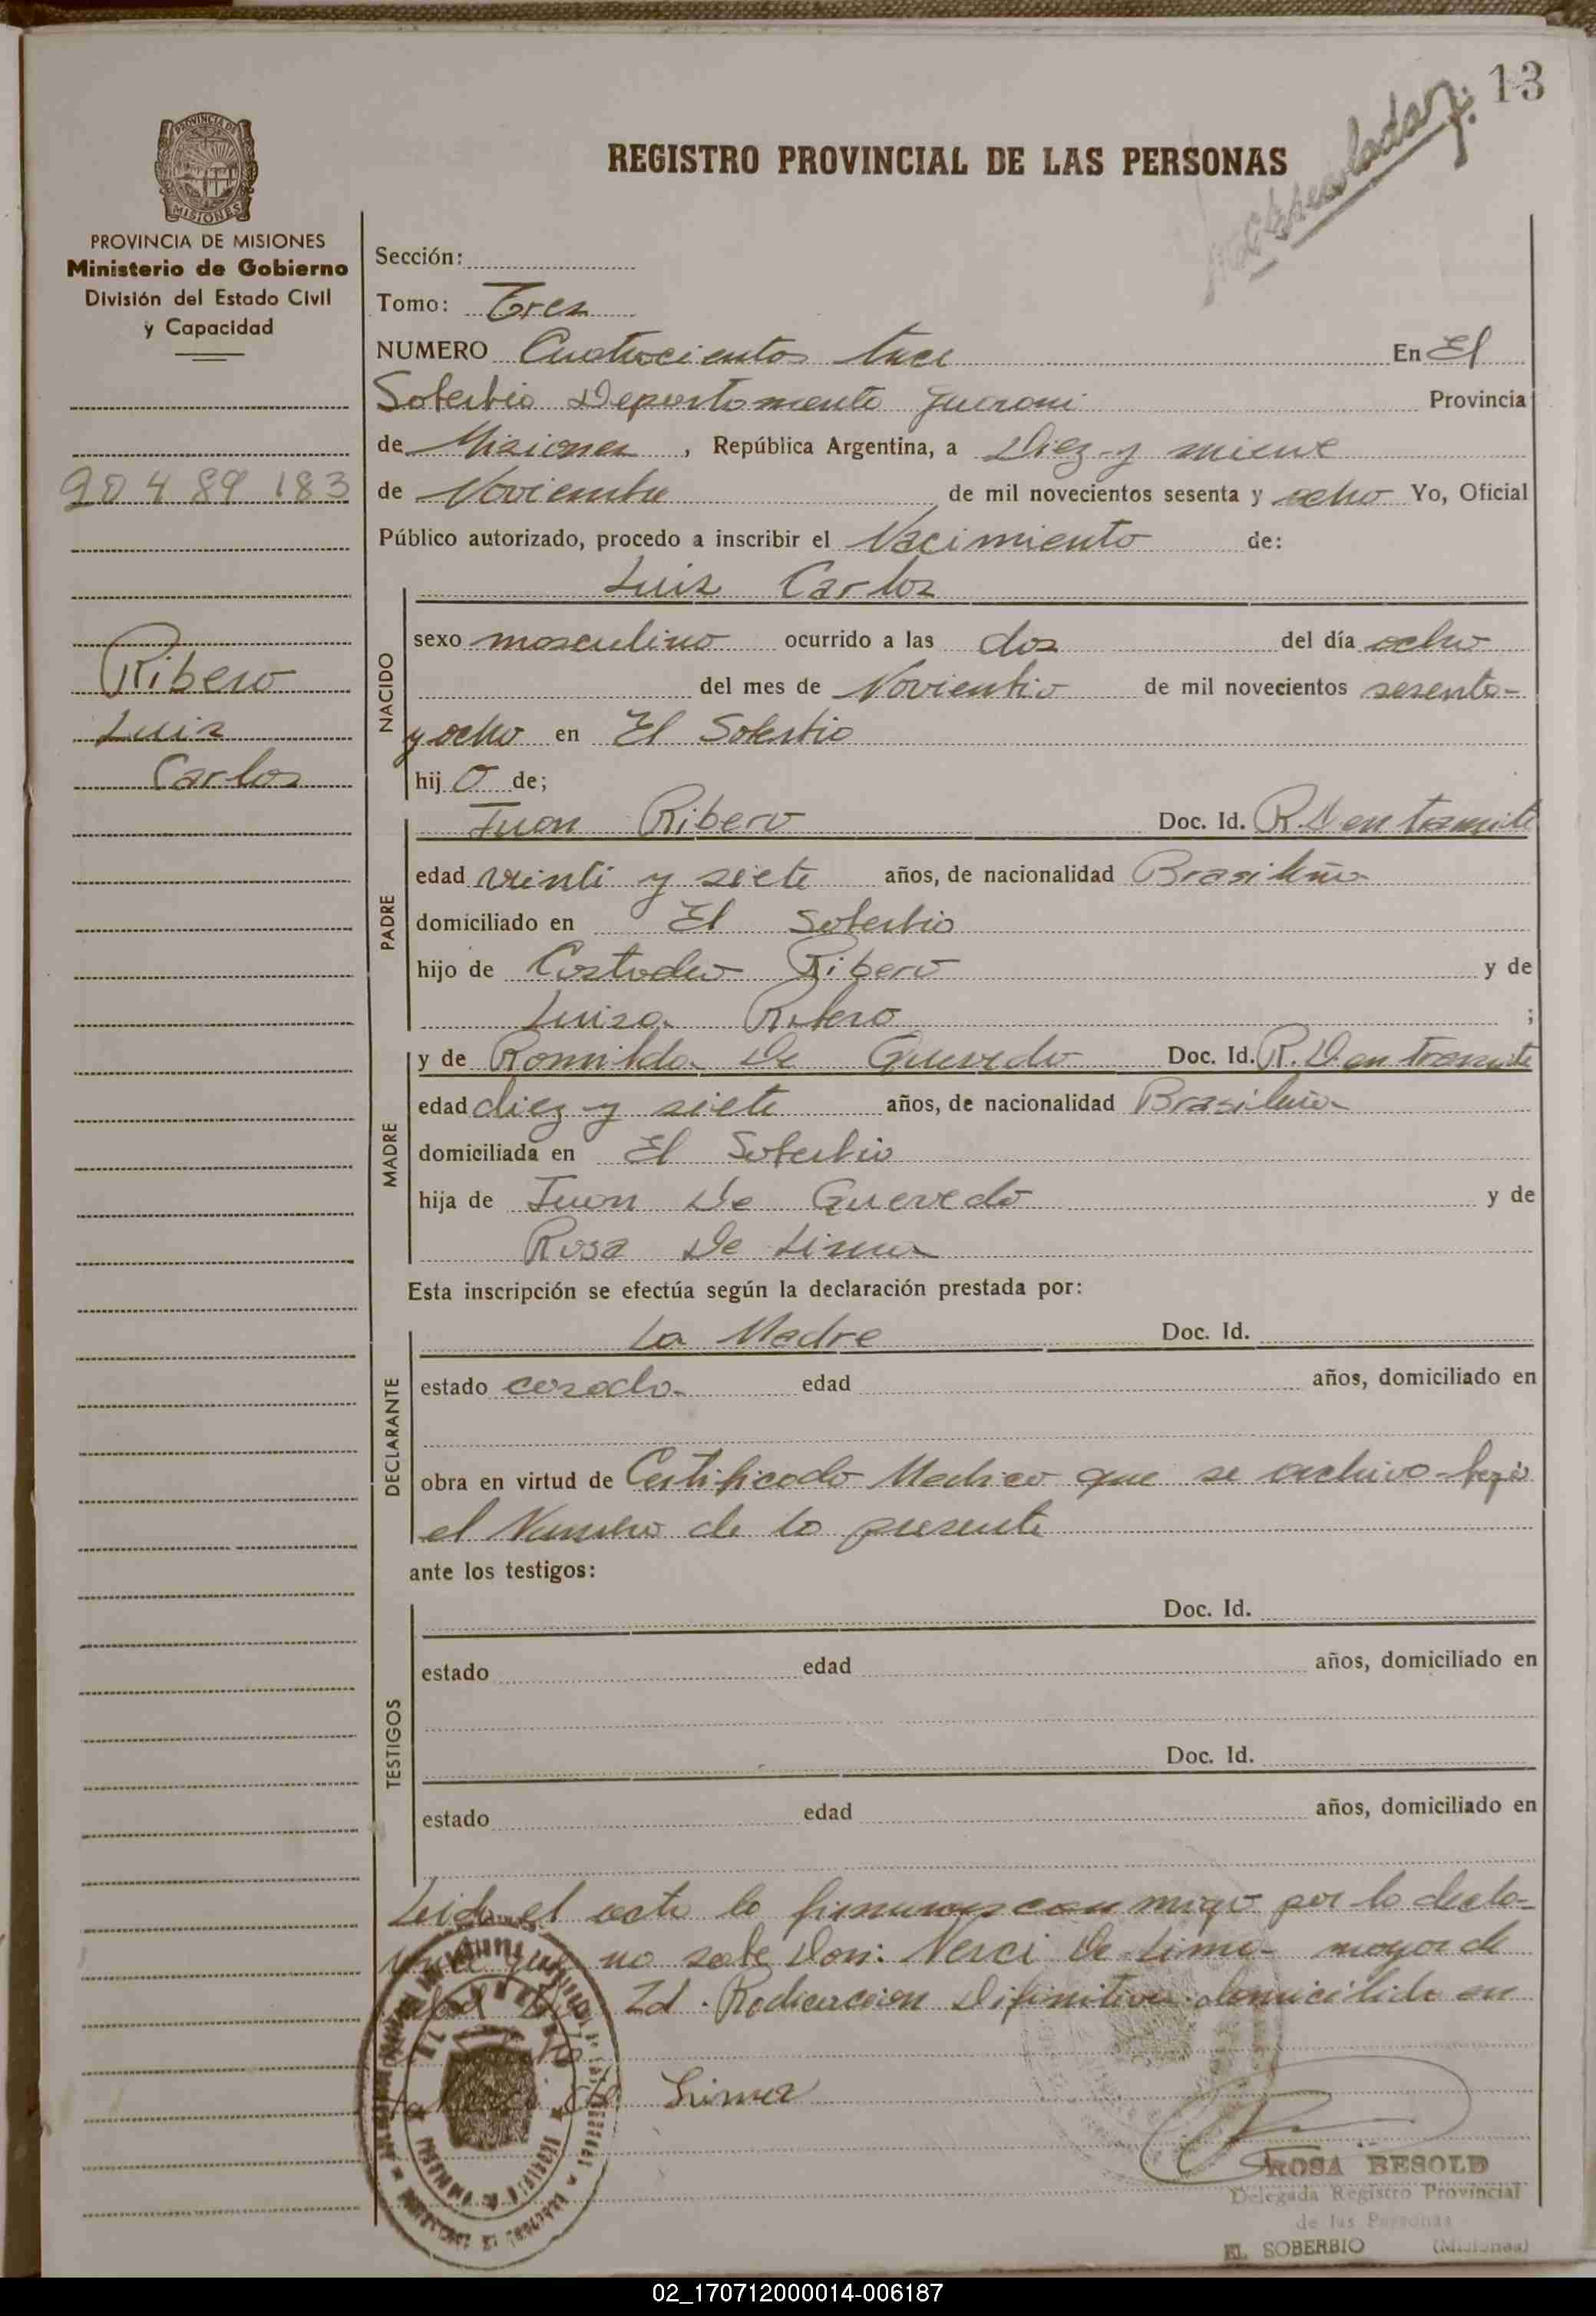 13
REGISTRO PROVINCIAL DE LAS PERSONAS
PROVINCIA DE
MISIONES
PROVINCIA DE MISIONES
Ministerio de Gobierno
División del Estado Civil
y Capacidad
90489183
Ribero
Luis
Carlos
Sección:
Tomo: Tres
NUMERO Cuatrocientos trece En El
Soberbio Departamento Guarani Provincia
de Misiones, República Argentina, a Diez y nueve
de Noviembre de mil novecientos sesenta y ocho Yo, Oficial
Público autorizado, procedo a inscribir el Nacimiento de:
Luis Carlos
NACIDO
sexo masculino ocurrido a las dos del día ocho
del mes de Noviembre de mil novecientos sesenta-
y ocho en El Soberbio
hij o de;
PADRE
Juan Ribero Doc. Id. R.D en tramite
edad veinti y siete años, de nacionalidad Brasileña
domiciliado en El Soberbio
hijo de Custodio Ribero y de
Luisa Ribero ;
MADRE
y de Romilda De Quevedo Doc. Id. R.D en tramite
edad diez y siete años, de nacionalidad Brasileña
domiciliada en El Soberbio
hija de Juan De Quevedo y de
Rosa De Lima
Esta inscripción se efectúa según la declaración prestada por:
DECLARANTE
La Madre Doc. Id.
estado casada edad años, domiciliado en
obra en virtud de Certificado Medico que se archiva bajo
el Numero de la presente
ante los testigos:
TESTIGOS
Doc. Id.
estado edad años, domiciliado en
Doc. Id.
estado edad años, domiciliado en
Leida el acta la firman conmigo por la decla-
rante que no sabe Don: Nerci De Lima- mayor de
edad Id. Radicacion Difinitiva domicilido en
de Lima
ROSA BESOLD
Delegada Registro Provincial
de las Personas
EL SOBERBIO (Misiones)
02_170712000014-006187